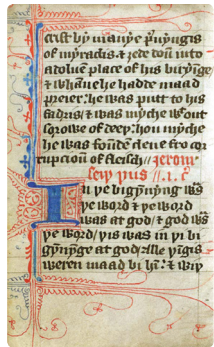 crist bi manye pruyngis
of myraclis. & ȝede doun into
a doluē place of his biryinge
& whāne he hadde maad
preier: he was putt to his
fadris. & was myche wout
sorowe of deeþ: hou myche
he was foūde clene fro cor
rupcioun of fleisch // jerom
seiþ þus // .i. c
In þe bigynyng was
þe word & þe word
was at god / & god was
þe word / þis was in þe bi
gynynge at god / alle þingis
weren maad bi hī: & wiþ